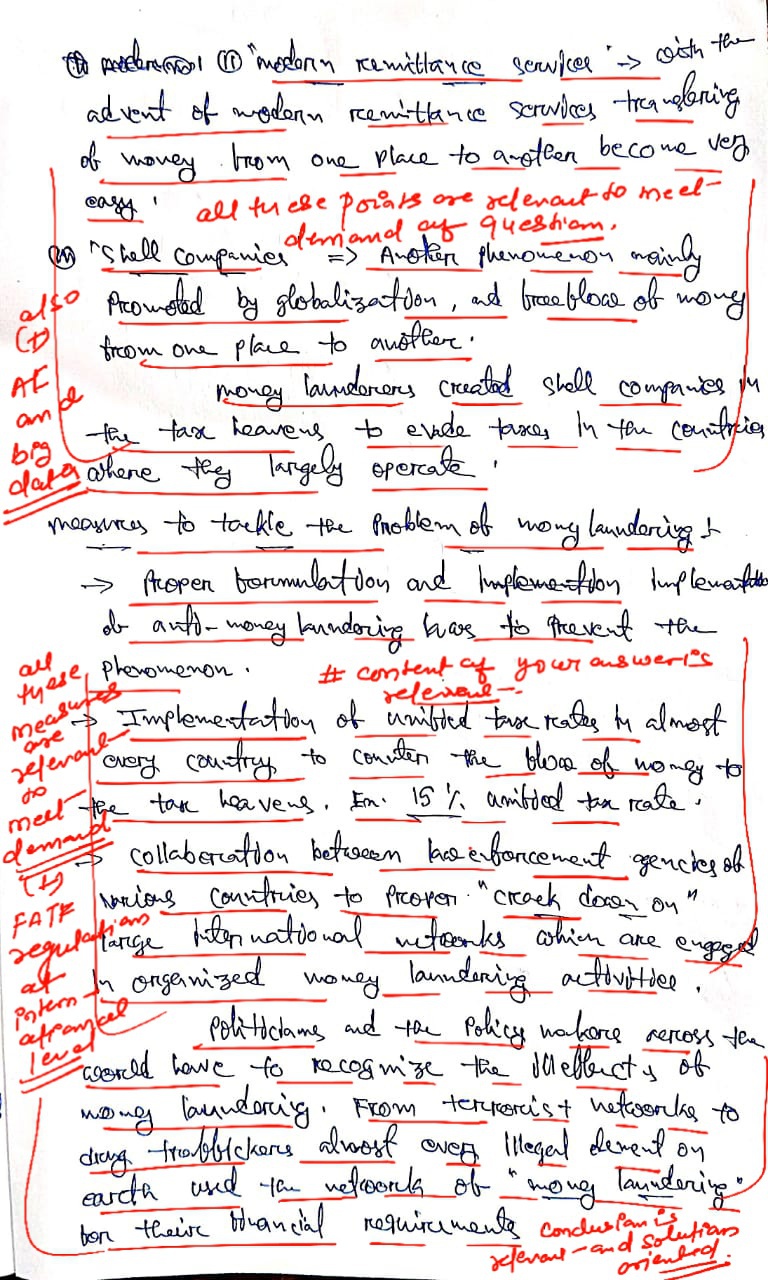 (ii) "modern remittance services" → with the
advent of modern remittance services transfering
of money from one place to another become very
easy.
all these points are relevant to meet
demand of question.
(iii) "Shell companies => Another phenomenon mainly
Promoted by globalization, and freeflow of money
from one place to another.
money launderers created shell companies in
the tax heavens to evade taxes in the countries
where they largely operate.
also
(+)
AI
and
big
data
measures to tackle the Problem of mony laundering :
→ Proper formulation and Implemention Implementation
of anti-money laundering laws to Prevent the
phenomenon.
# content of your answer is
relevant -
→ Implementation of unified tax rates in almost
every country to counter the flow of money to
the tax heavens. Ex. 15% unified tax rate.
all
these
measures
are
relevant
to
meet
demand
→ collaboration between law enforcement agencies of
various countries to proper "crack down on"
large International networks which are engaged
In organized money laundering activities.
(+)
FATF
regulations
at
level
Politicians and the Policy makers across the
world have to recognize the illeffects of
money laundering. From terrorist networks to
drug traffickers almost every illegal element on
earth used the network of "mony laundering"
for their financial requirements
conclusion is
relevant and solution
oriented.